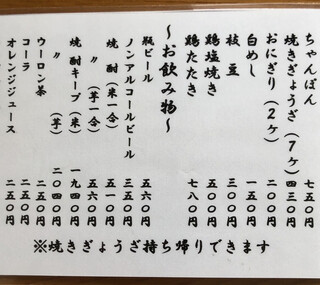 ちゃんぽん 七五〇円
焼きぎょうざ(7ヶ) 四三〇円
おにぎり(2ヶ) 一五〇円
白めし 二〇〇円
枝豆 三〇〇円
鶏塩焼き 五〇〇円
鶏たたき 七八〇円
～お飲み物～
瓶ビール 五六〇円
ノンアルコールビール 三五〇円
焼酎(米一合) 五一〇円
〃(芋一合) 五六〇円
焼酎キープ(米) 一九四〇円
〃(芋) 二〇四〇円
ウーロン茶 二五〇円
コーラ 二五〇円
オレンジジュース 二五〇円
※焼きぎょうざ持ち帰りできます